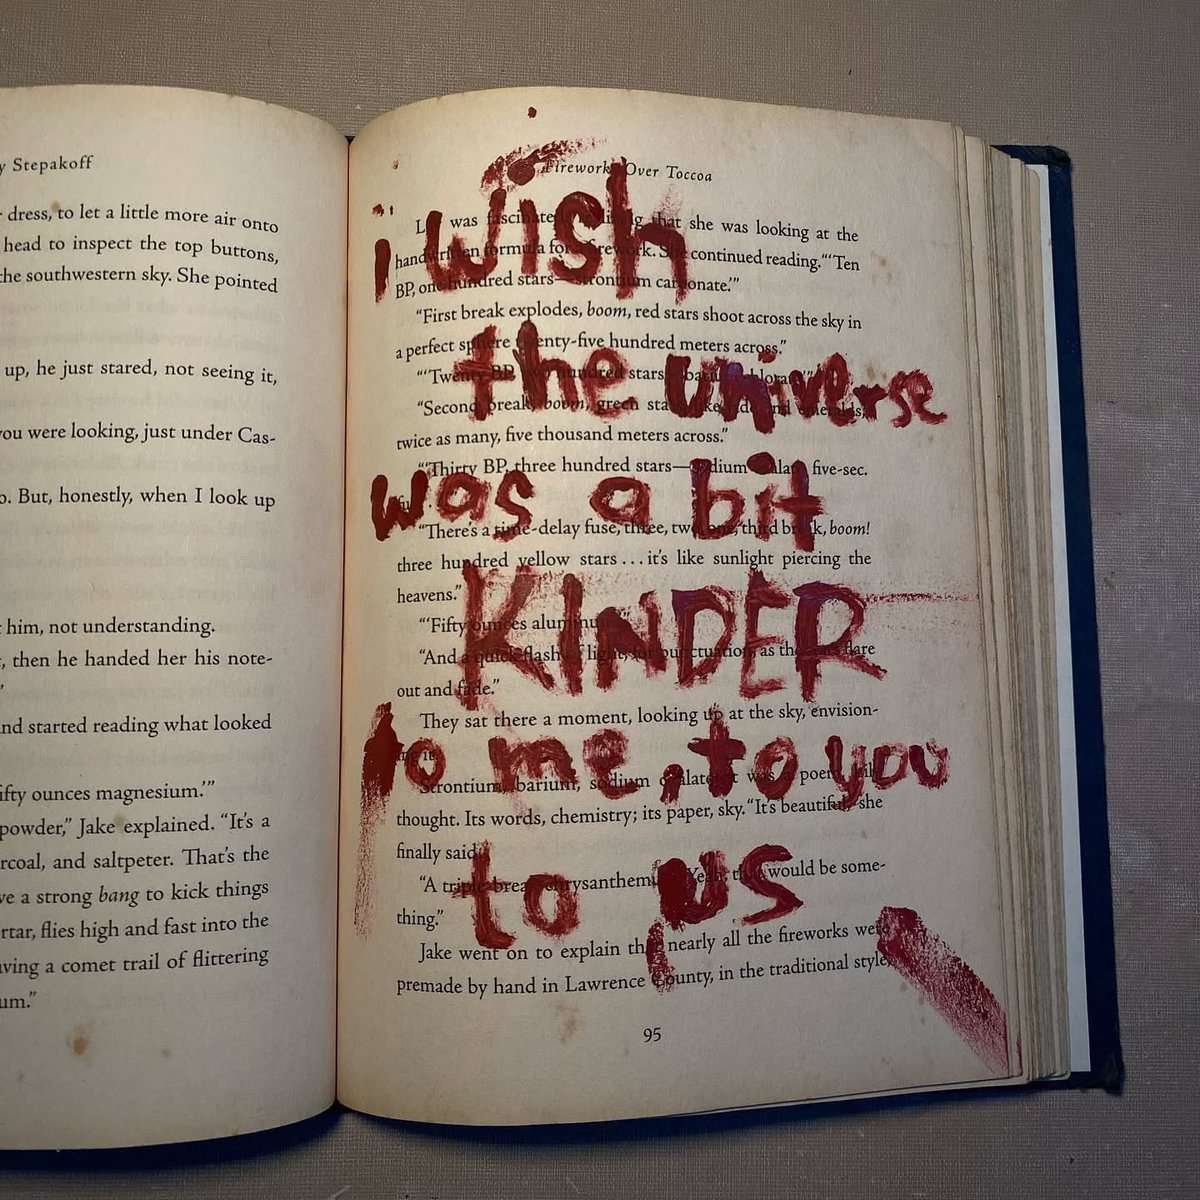 y Stepakoff
dress, to let a little more air onto
head to inspect the top buttons,
the southwestern sky. She pointed
up, he just stared, not seeing it,
you were looking, just under Cas-
o. But, honestly, when I look up
him, not understanding.
, then he handed her his note-
”
nd started reading what looked
ifty ounces magnesium.’”
powder,” Jake explained. “It’s a
rcoal, and saltpeter. That’s the
ve a strong bang to kick things
rtar, flies high and fast into the
aving a comet trail of flittering
um.”
Fireworks Over Toccoa
was fascinated that she was looking at the
handwritten formula for a firework. She continued reading. “‘Ten
BP, one hundred stars—strontium carbonate.’”
“First break explodes, boom, red stars shoot across the sky in
a perfect sphere twenty-five hundred meters across.”
“‘Twenty BP, two hundred stars
“Second break, boom, green stars like jade and emeralds,
twice as many, five thousand meters across.”
“‘Thirty BP, three hundred stars—sodium oxalate five-sec.
“There’s a time-delay fuse, three, two, one, third break, boom!
three hundred yellow stars . . . it’s like sunlight piercing the
heavens.”
“‘Fifty ounces aluminum.’”
“And a quick flash of light, for punctuation, as the stars flare
out and fade.”
They sat there a moment, looking up at the sky, envision-
ing it.
Strontium, barium, sodium oxalate. It was a poem, Lily
thought. Its words, chemistry; its paper, sky. “It’s beautiful,” she
finally said.
“A triple-break chrysanthemum. Yeah, that would be some-
thing.”
Jake went on to explain that nearly all the fireworks were
premade by hand in Lawrence County, in the traditional style,
95
i wish
the universe
was a bit
KINDER
to me, to you
to us